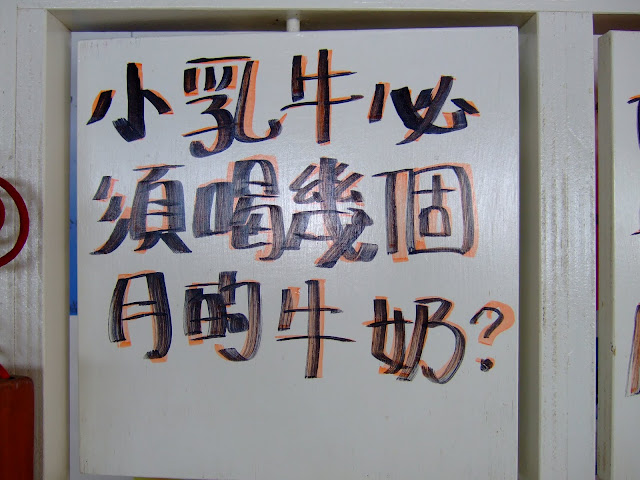 小乳牛必
須喝幾個
月的牛奶?